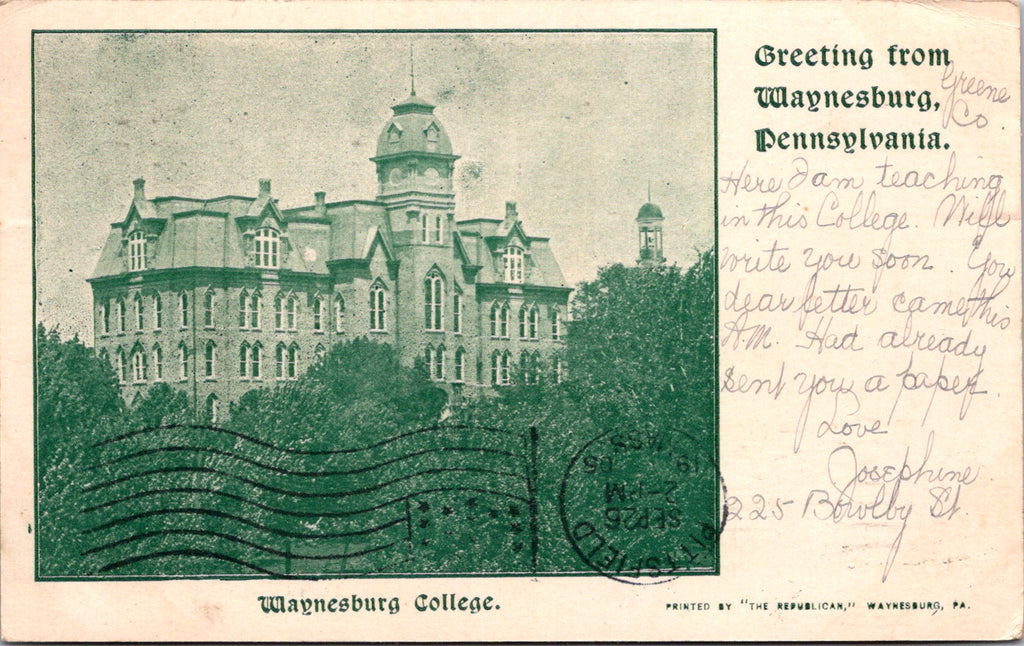 Greeting from
Waynesburg,
Greene
Co
Pennsylvania.
Here I am teaching
in this College. Will
write you soon. You
dear letter came this
A.M. Had already
sent you a paper.
Love
Josephine
225 Bowlby St.
PITTSFIELD
SEP 26
2-PM
19 05
MASS
Waynesburg College.
PRINTED BY "THE REPUBLICAN," WAYNESBURG, PA.